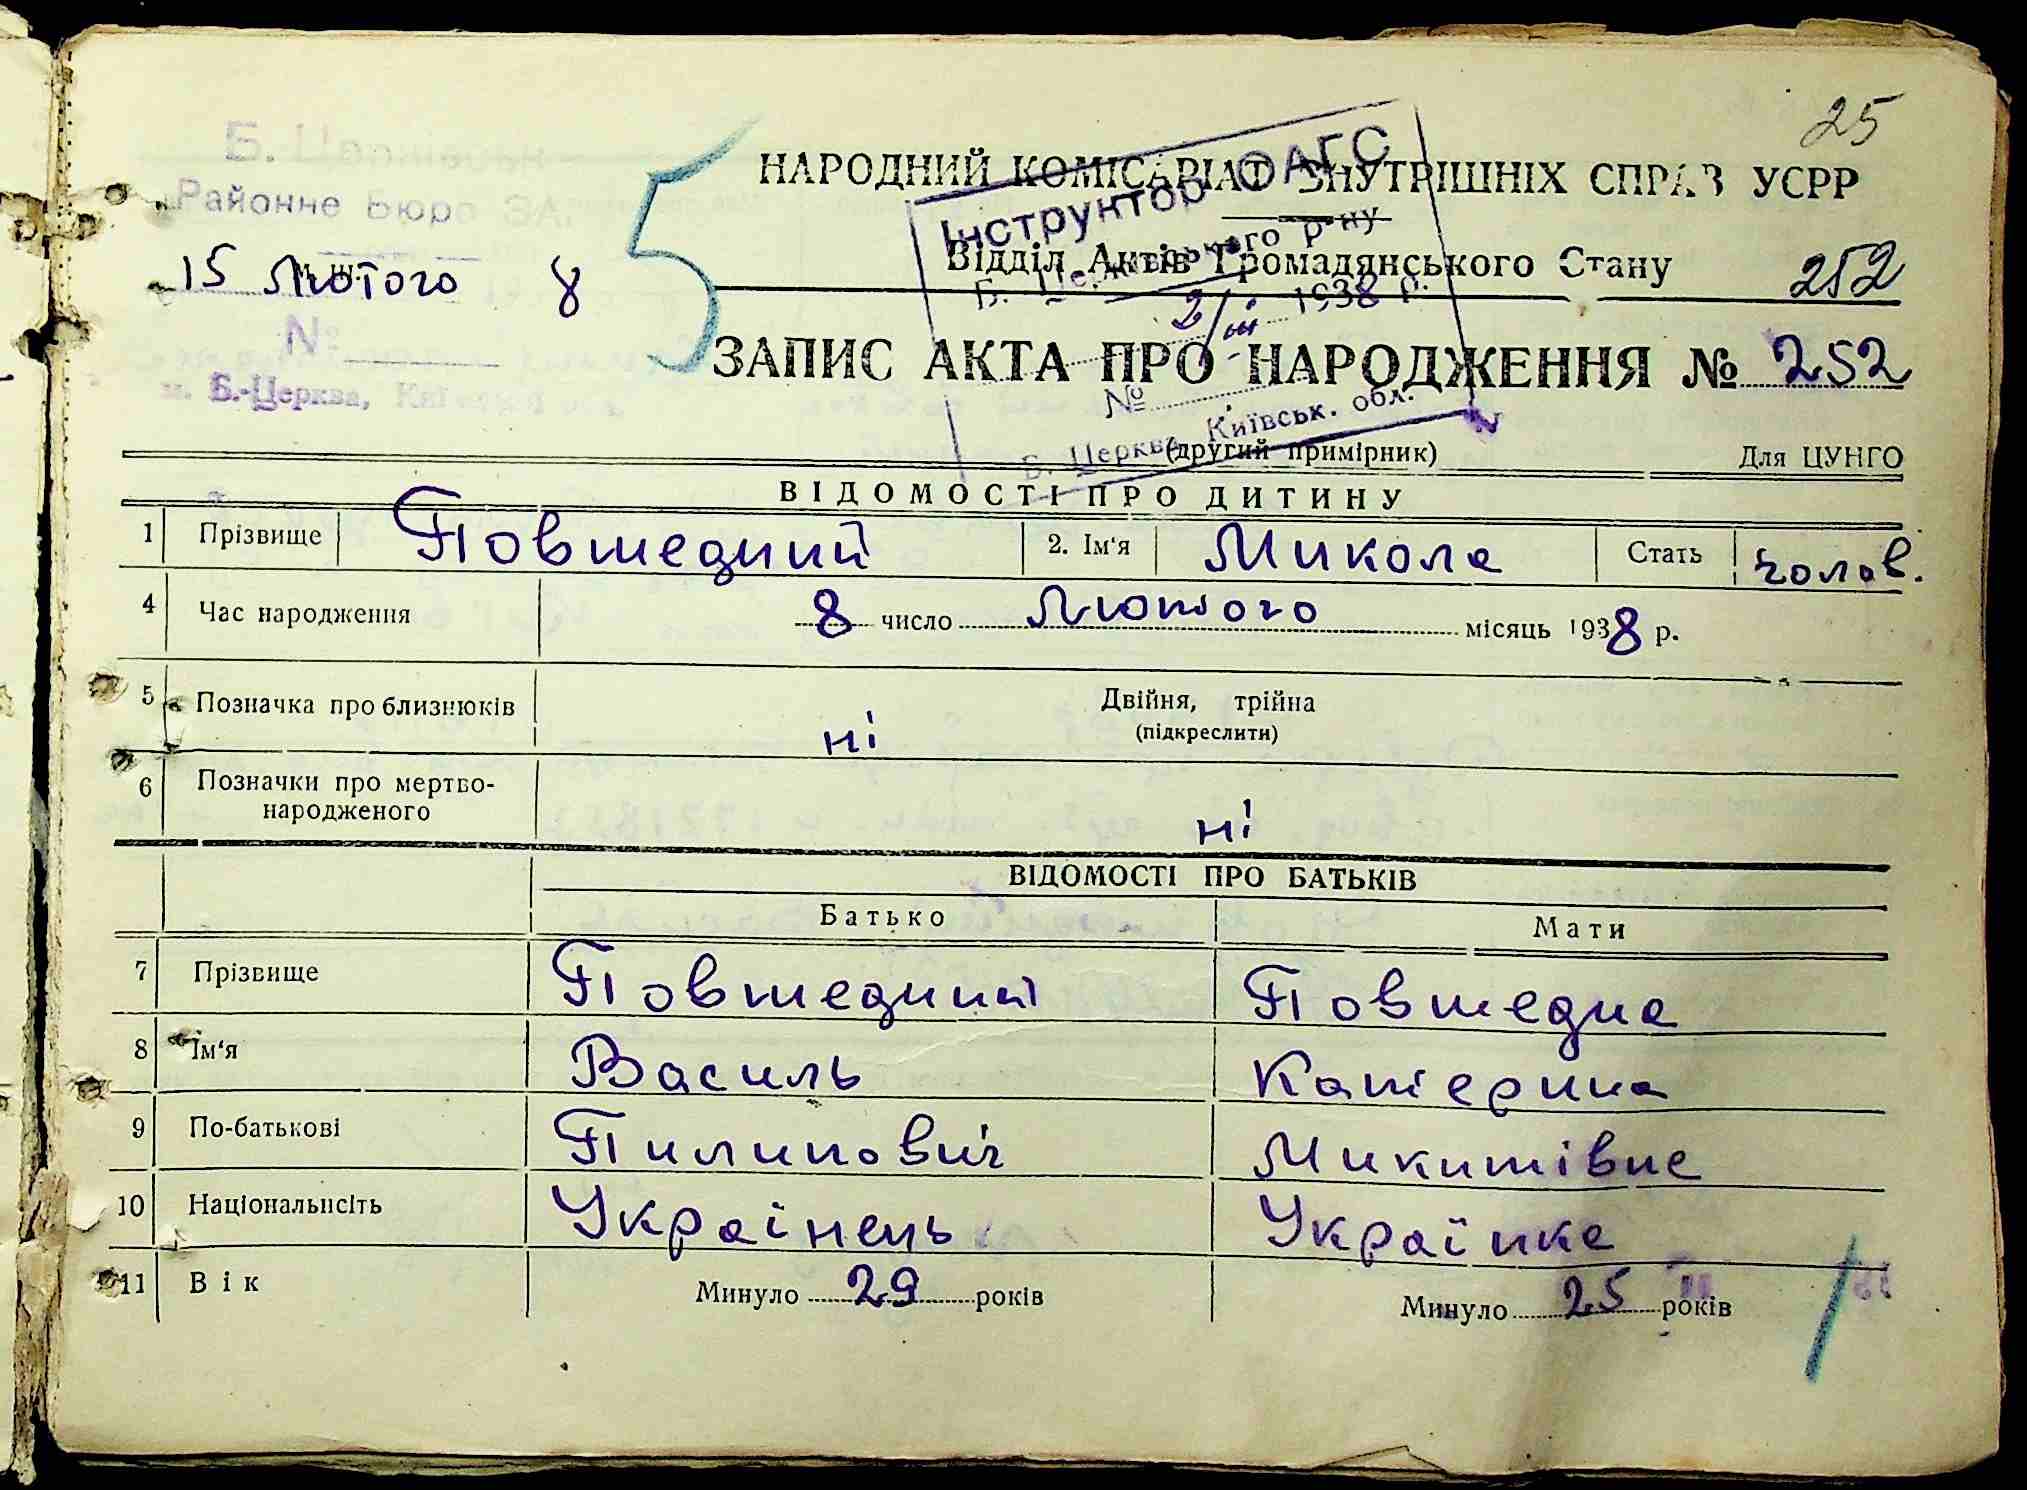 25
НАРОДНИЙ КОМІСАРІАТ ВНУТРІШНІХ СПРАВ УСРР
Б. Церківське
Районне Бюро ЗАГС
Інструктор ОАГС
Б. Церківського р-ну
Відділ Актів Громадянського Стану
252
15 Лютого 8
2/III 1938 р.
5
ЗАПИС АКТА ПРО НАРОДЖЕННЯ № 252
№
№
м. Б.-Церква, Київської обл.
Б. Церква, Київськ. обл.
(другий примірник)
Для ЦУНГО
ВІДОМОСТІ ПРО ДИТИНУ
1 Прізвище Повшедний 2. Ім'я Микола Стать чолов.
4 Час народження 8 число Лютого місяць 1938 р.
5 Позначка про близнюків ні Двійня, трійна
(підкреслити)
6 Позначки про мертво-
народженого ні
ВІДОМОСТІ ПРО БАТЬКІВ
Батько Мати
7 Прізвище Повшедний Повшедна
8 Ім'я Василь Катерина
9 По-батькові Пилипович Микитівна
10 Національність Українець Українка
11 Вік Минуло 29 років Минуло 25 років